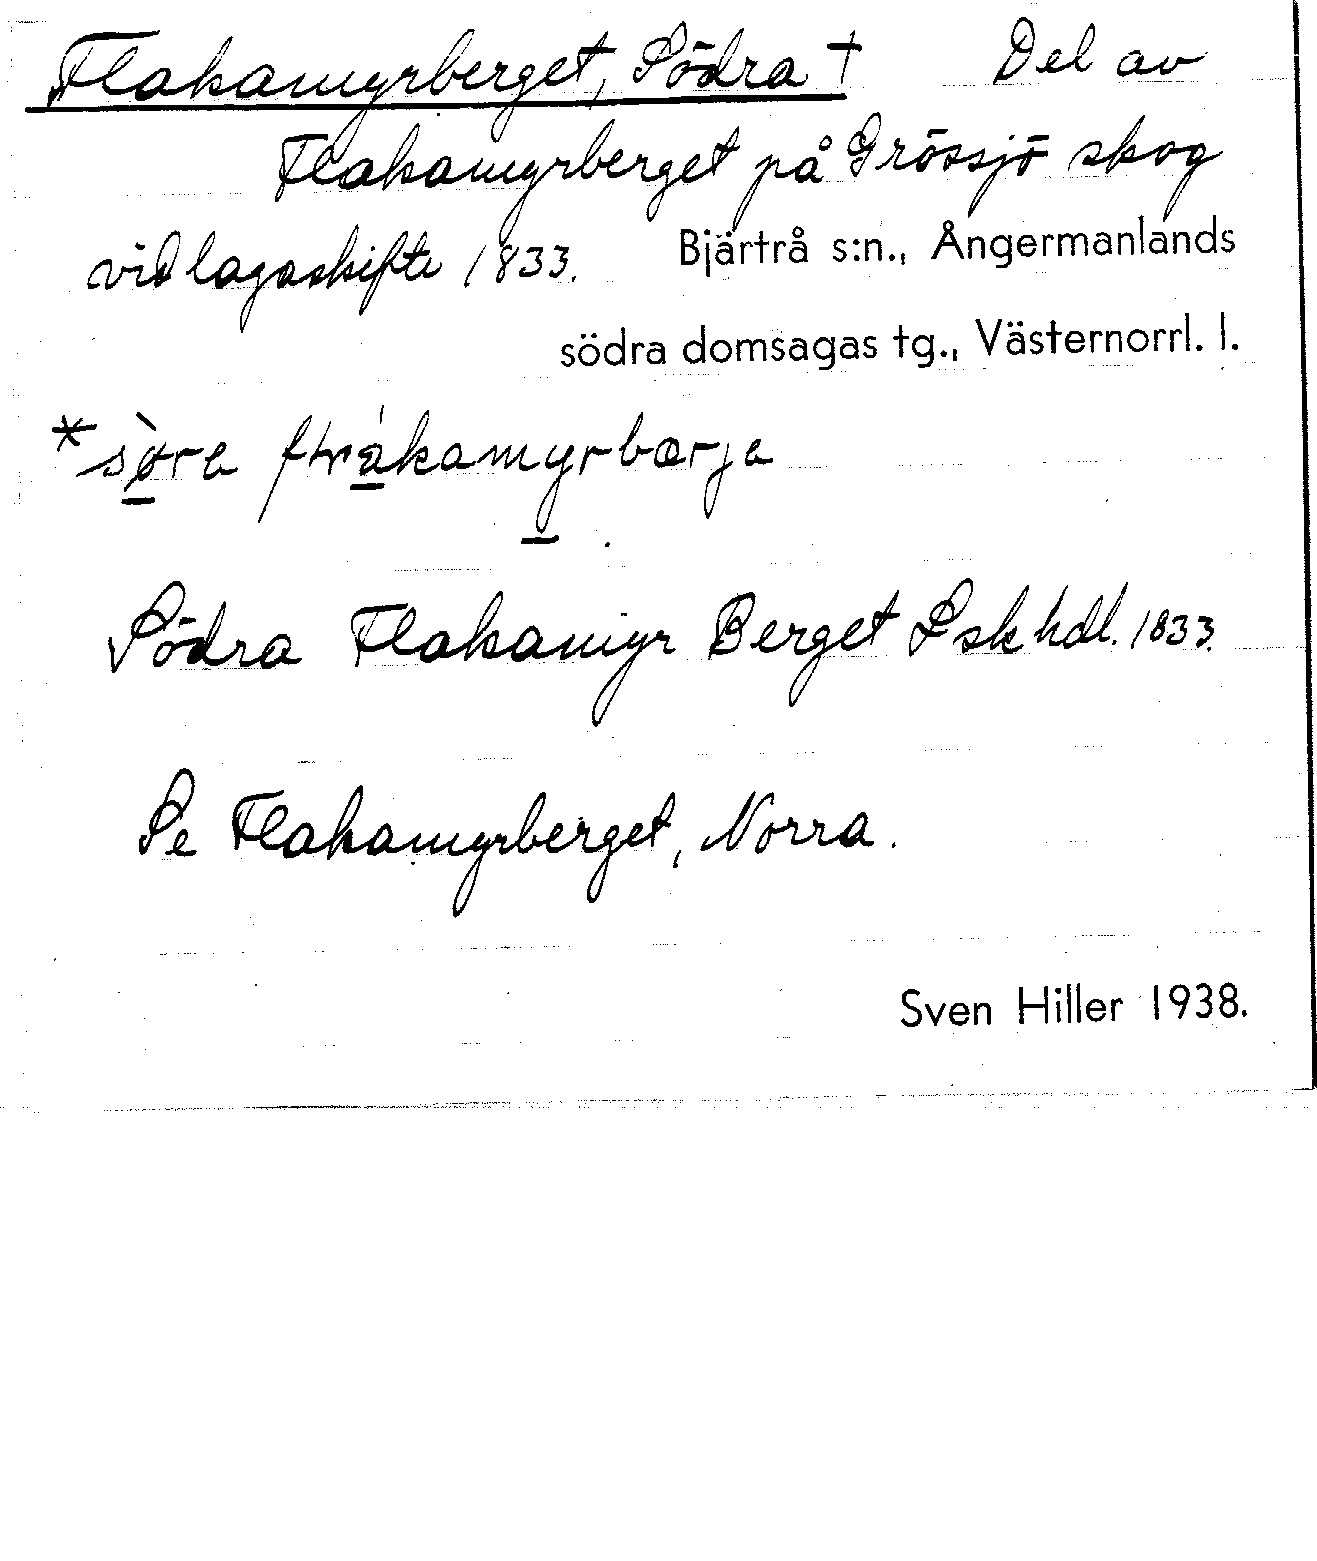 Flakamyrberget, Södra † Del av
Flakamyrberget på Grössjö skog
vid lagaskifte 1833. Bjärtrå s:n., Ångermanlands
södra domsagas tg., Västernorrl. l.
Södra Flakamyr Berget Lskhdl. 1833.
Se Flakamyrberget, Norra.
Sven Hiller 1938.